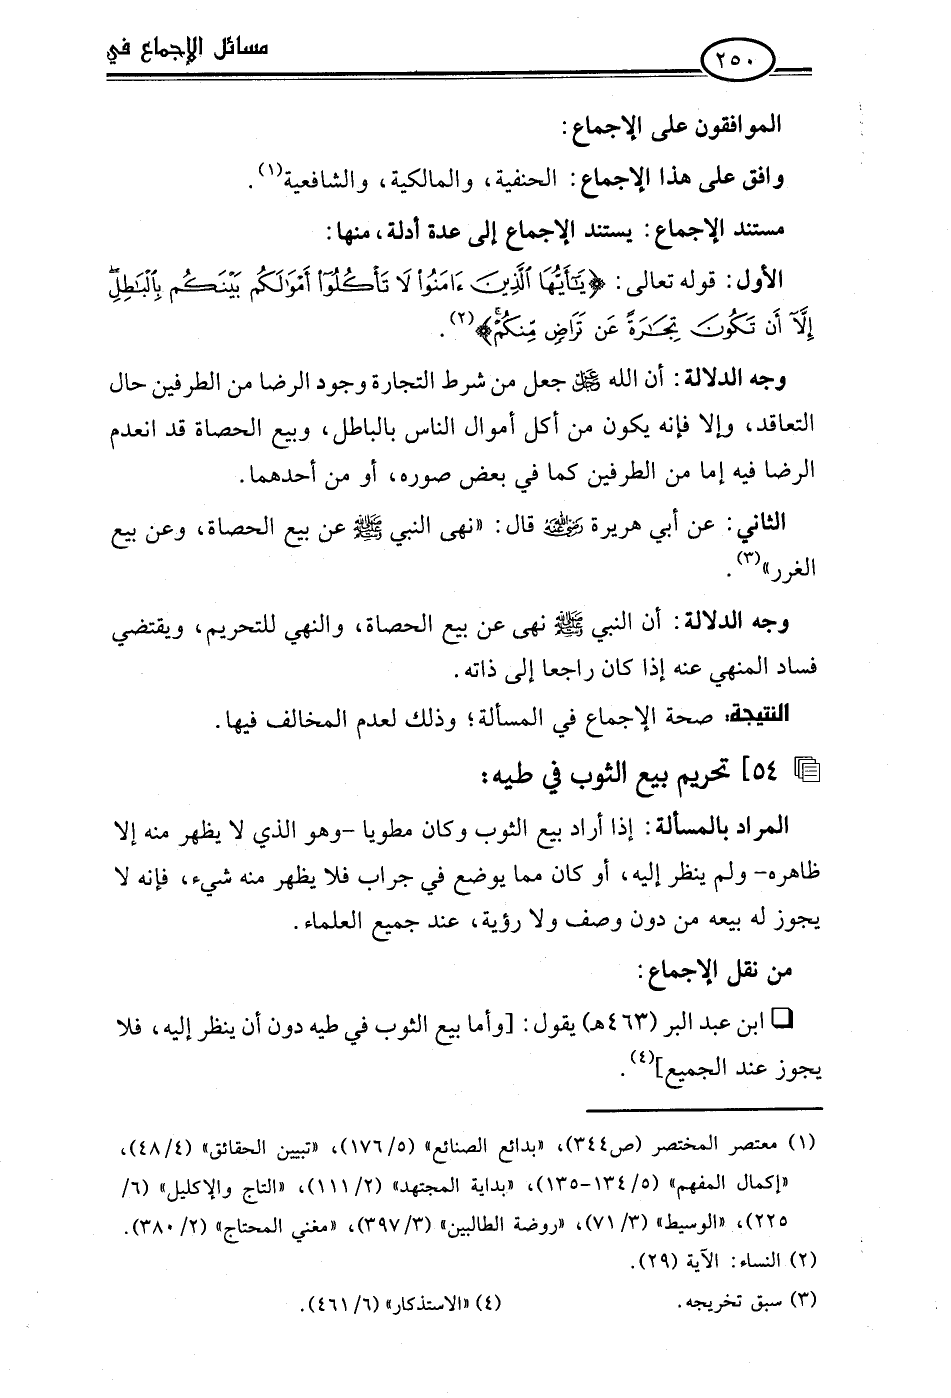 ٢٥٠ مسائل الإجماع في
الموافقون على الإجماع:
وافق على هذا الإجماع: الحنفية، والمالكية، والشافعية(١).
مستند الإجماع: يستند الإجماع إلى عدة أدلة، منها:
الأول: قوله تعالى: ﴿يَٰٓأَيُّهَا ٱلَّذِينَ ءَامَنُوا۟ لَا تَأْكُلُوٓا۟ أَمْوَٰلَكُم بَيْنَكُم بِٱلْبَٰطِلِ
إِلَّآ أَن تَكُونَ تِجَٰرَةً عَن تَرَاضٍ مِّنكُمْ﴾(٢).
وجه الدلالة: أن الله ﷻ جعل من شرط التجارة وجود الرضا من الطرفين حال
التعاقد، وإلا فإنه يكون من أكل أموال الناس بالباطل، وبيع الحصاة قد انعدم
الرضا فيه إما من الطرفين كما في بعض صوره، أو من أحدهما.
الثاني: عن أبي هريرة رضي الله عنه قال: «نهى النبي ﷺ عن بيع الحصاة، وعن بيع
الغرر»(٣).
وجه الدلالة: أن النبي ﷺ نهى عن بيع الحصاة، والنهي للتحريم، ويقتضي
فساد المنهي عنه إذا كان راجعا إلى ذاته.
النتيجة: صحة الإجماع في المسألة؛ وذلك لعدم المخالف فيها.
٥٤] تحريم بيع الثوب في طيه:
المراد بالمسألة: إذا أراد بيع الثوب وكان مطويا -وهو الذي لا يظهر منه إلا
ظاهره- ولم ينظر إليه، أو كان مما يوضع في جراب فلا يظهر منه شيء، فإنه لا
يجوز له بيعه من دون وصف ولا رؤية، عند جميع العلماء.
من نقل الإجماع:
❏ ابن عبد البر (٤٦٣هـ) يقول: [وأما بيع الثوب في طيه دون أن ينظر إليه، فلا
يجوز عند الجميع](٤).
(١) معتصر المختصر (ص٣٤٤)، «بدائع الصنائع» (٥/ ١٧٦)، «تبيين الحقائق» (٤/ ٤٨)،
«إكمال المفهم» (٥/ ١٣٤-١٣٥)، «بداية المجتهد» (٢/ ١١١)، «التاج والإكليل» (٦/
٢٢٥)، «الوسيط» (٣/ ٧١)، «روضة الطالبين» (٣/ ٣٩٧)، «مغني المحتاج» (٢/ ٣٨٠).
(٢) النساء: الآية (٢٩).
(٣) سبق تخريجه. (٤) «الاستذكار» (٦/ ٤٦١).